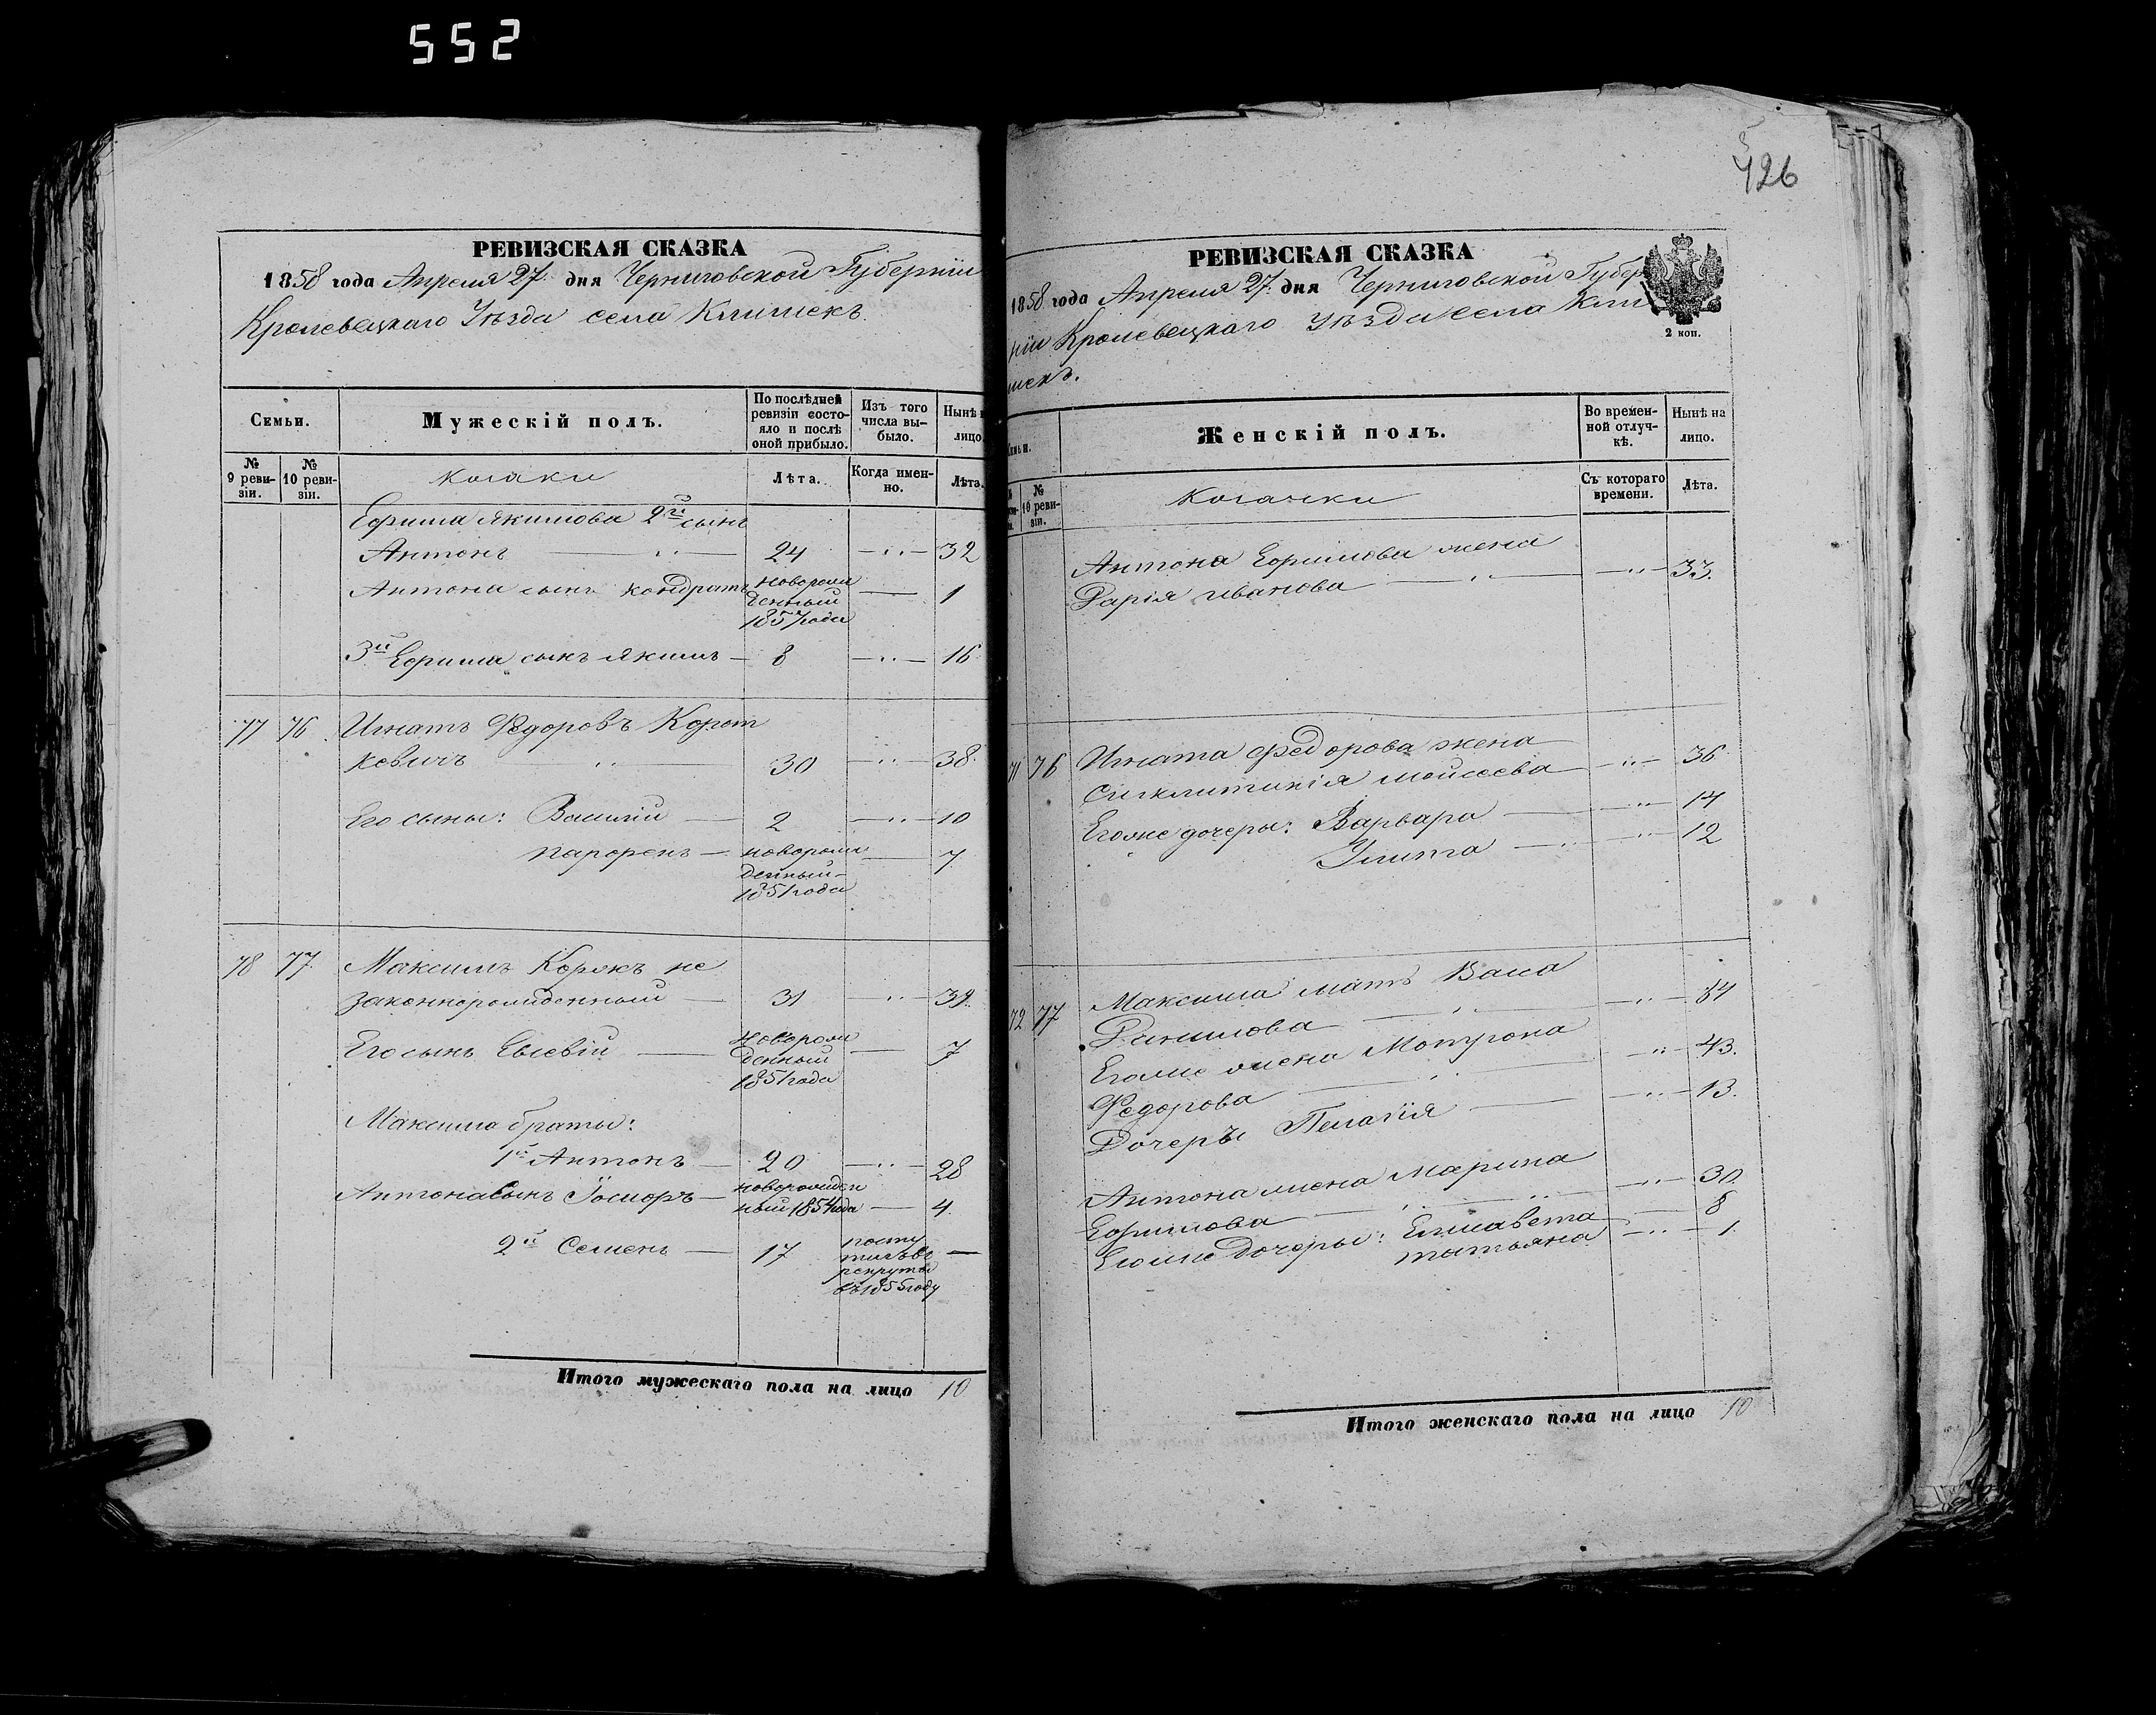 552
РЕВИЗСКАЯ СКАЗКА
1858 года Апреля 27 дня Черниговской Губерніи
Кролевецкаго Уѣзда села Клишекъ.
Семьи.
Мужескій полъ.
По послѣдней ревизіи состояло и послѣ оной прибыло.
Изъ того числа выбыло.
Нынѣ
лицо.
№ 9 ревизіи.
№ 10 ревизіи.
Козаки
Лѣта.
Когда именно.
Лѣта.
Ефима Якимова 2й сынъ
Антонъ 24 32
Антона сынъ Кондратъ новорожденный 1857 года 1
3й Ефима сынъ Якимъ 8 16
77 76 Игнатъ Федоровъ Корот
кевичъ 30 38
Его сыны: Василій 2 10
Парфенъ новорожденный 1851 года 7
78 77 Максимъ Корякъ не
законнорожденный 31 39
Его сынъ Евсевій новорожденный 1851 года 7
Максима браты:
1й Антонъ 20 28
Антона сынъ Іосифъ новорожденный 1854 года 4
2й Семенъ 17 посту
пилъ въ
рекруты
въ 1855 году
Итого мужескаго пола на лицо 10
426
РЕВИЗСКАЯ СКАЗКА
1858 года Апреля 27 дня Черниговской Губер
ніи Кролевецкаго Уѣзда села Кли
шекъ.
2 коп.
Женскій полъ.
Во временной отлучкѣ.
Нынѣ на лицо.
№ 10 ревизіи.
Козачки
Съ котораго времени.
Лѣта.
Антона Ефимова жена
Дарія Иванова 33
76 Игната Федорова жена
Синклитикія Моисеева 36
Егоже дочеры: Варвара 14
Улита 12
77 Максима мать Васа
Данилова 84
Егоже жена Мотрона
Федорова 43
Дочеръ Пелагія 13
Антона жена Марина
Ефимова 30
Егоже дочеры: Елисавета 8
Татьяна 1
Итого женскаго пола на лицо 10